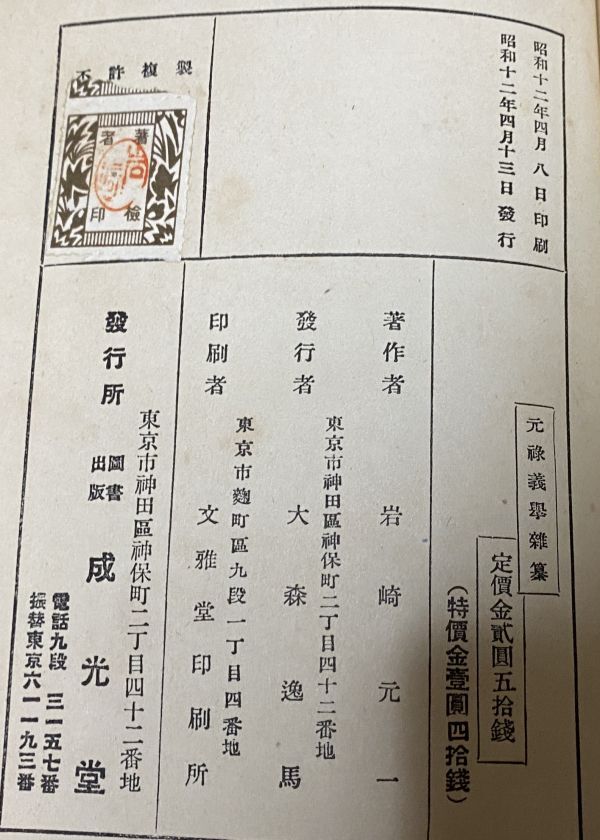 昭和十二年四月八日印刷
昭和十二年四月十三日發行
不許複製
著者
檢印
元祿義擧雜纂
定價金貳圓五拾錢
(特價金壹圓四拾錢)
著作者 岩崎元一
東京市神田區神保町二丁目四十二番地
發行者 大森逸馬
東京市麴町區九段一丁目四番地
印刷者 文雅堂印刷所
東京市神田區神保町二丁目四十二番地
發行所 圖書出版 成光堂
電話九段三一五七番
振替東京六一一九三番